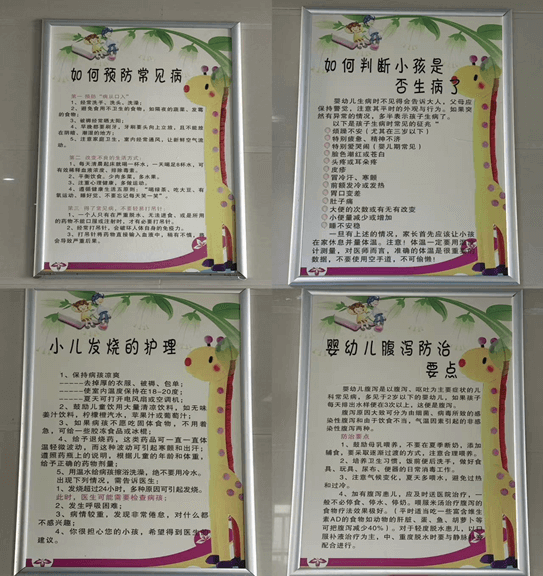 如何预防常见病
第一 预防“病从口入”
1、经常洗手、洗头、洗澡;
2、避免食用不卫生的食物,如隔夜的蔬菜、发霉
的食物;
3、被褥经常晒太阳;
4、早晚应要刷牙,牙刷要头向上立放,且不能放
在阴暗、潮湿的地方;
5、注意家庭卫生,室内经常通风,让新鲜空气流
动。
第二 改变不良的生活方式
1、每天清晨起床就喝一杯水,一天喝足8杯水,可
有效稀释血液浓度,排除毒素。
2、平衡饮食,少肉多菜,多水果。
3、注重心理健康,多做运动。
4、遵循健康生活五原则:“喝绿茶,吃大豆,有
氧运动,睡好觉,不要忘记每天笑一笑”。
第三 得了常见病,不要轻易打吊针
1、一个人只有在严重脱水、无法进食,或是所用
的药物不能口服或注射时,才有必要打吊针。
2、经常打吊针,会破坏人体自身的免疫力。
3、打吊针将药物直接输入血液中,稍有不慎,就
会导致严重后果。
如何判断小孩是
否生病了
婴幼儿生病时不见得会告诉大人,父母应
保持警觉,注意其平时的外观与行为。如果突
然有异常的情况,多半表示孩子生病了。
以下是孩子生病时常见的征兆:
烦躁不安(尤其在三岁以下)
特别疲惫、精神不济
特别爱哭闹(婴儿期常见)
脸色潮红或苍白
头疼或耳朵疼
皮疹
冒冷汗、寒颤
前额发冷或发热
胃口变差
肚子痛
大便的次数或有无有改变
小便量减少或增加
睡不安稳
一旦有上述的情况,家长首先应该让小孩
在家休息并量体温。注意!体温一定要用
计测量,对医师而言,准确的体温是很重要
数据,不要使用空手道,不可偷懒!
小儿发烧的护理
1、保持病孩凉爽
-----去掉厚的衣服、被褥、包单;
-----使室内温度保持在18-20度;
-----夏天可打开电风扇或空调机;
2、鼓励儿童饮用大量清凉饮料,如无味
姜汁饮料,柠檬橙汽水,苹果汁或葡萄汁;
3、如果病孩不思吃固体食物,不用着
急,可给一些胶冻食品或冰棍;
4、给予退烧药,这类药品可一直一直体
温轻微波动,而这种波动可引起寒颤和出汗;
遵照药瓶上的说明,根据儿童的年龄和体重,
给予正确的药物剂量;
5、用温水给病孩擦浴洗澡,绝不要用冷水。
出现下列情况,需告诉医生:
1、发烧超过24小时,多种原因可引起发烧。
此时,医生可能需要检查病孩;
2、发生呼吸困难;
3、病情较重,发现非常倦怠,对什么都
不感兴趣;
4、你很担心您的小孩,希望得到医生的
建议。
婴幼儿腹泻防治
要点
婴幼儿腹泻是以腹泻、呕吐为主要症状的儿
科常见病,多见于2岁以下的婴幼儿,如果孩子
每天排出水样便在3次以上,这便是腹泻。
腹泻原因大致可分为由细菌、病毒所致的感
染性腹泻和由于饮食不当,气温因素引起的非感
染性腹泻两种。
防治要点
1、鼓励母乳喂养,不要在夏季断奶,添加
辅食,要采取逐渐过渡的方式,注意合理喂养。
2、培养卫生习惯,饭前便后洗手,做好食
具、玩具、尿布、便器的日常消毒工作。
3、注意气候变化,夏天多喂水,避免过热
和过冷。
4、如有腹泻患儿,应及时送医院治疗,一
般不必停食、停水、停奶,喂服米汤治疗腹泻的
食物疗法效果极好。(平时适当吃一些富含维生
素AD的食物如动物的肝脏、蛋、鱼、胡萝卜等
可把腹泻减少40%)。对于轻度脱水患儿,以
服补液治疗为主,中、重度脱水时要与静脉
配合进行。